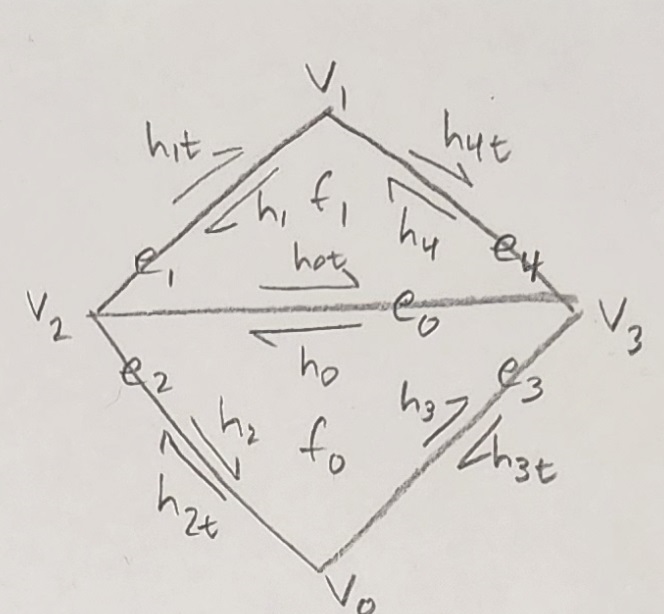 V1
h1t
h4t
h1
f1
h4
e1
h0t
e4
V2
e0
V3
h0
e2
h3
e3
h2
f0
h3t
h2t
V0